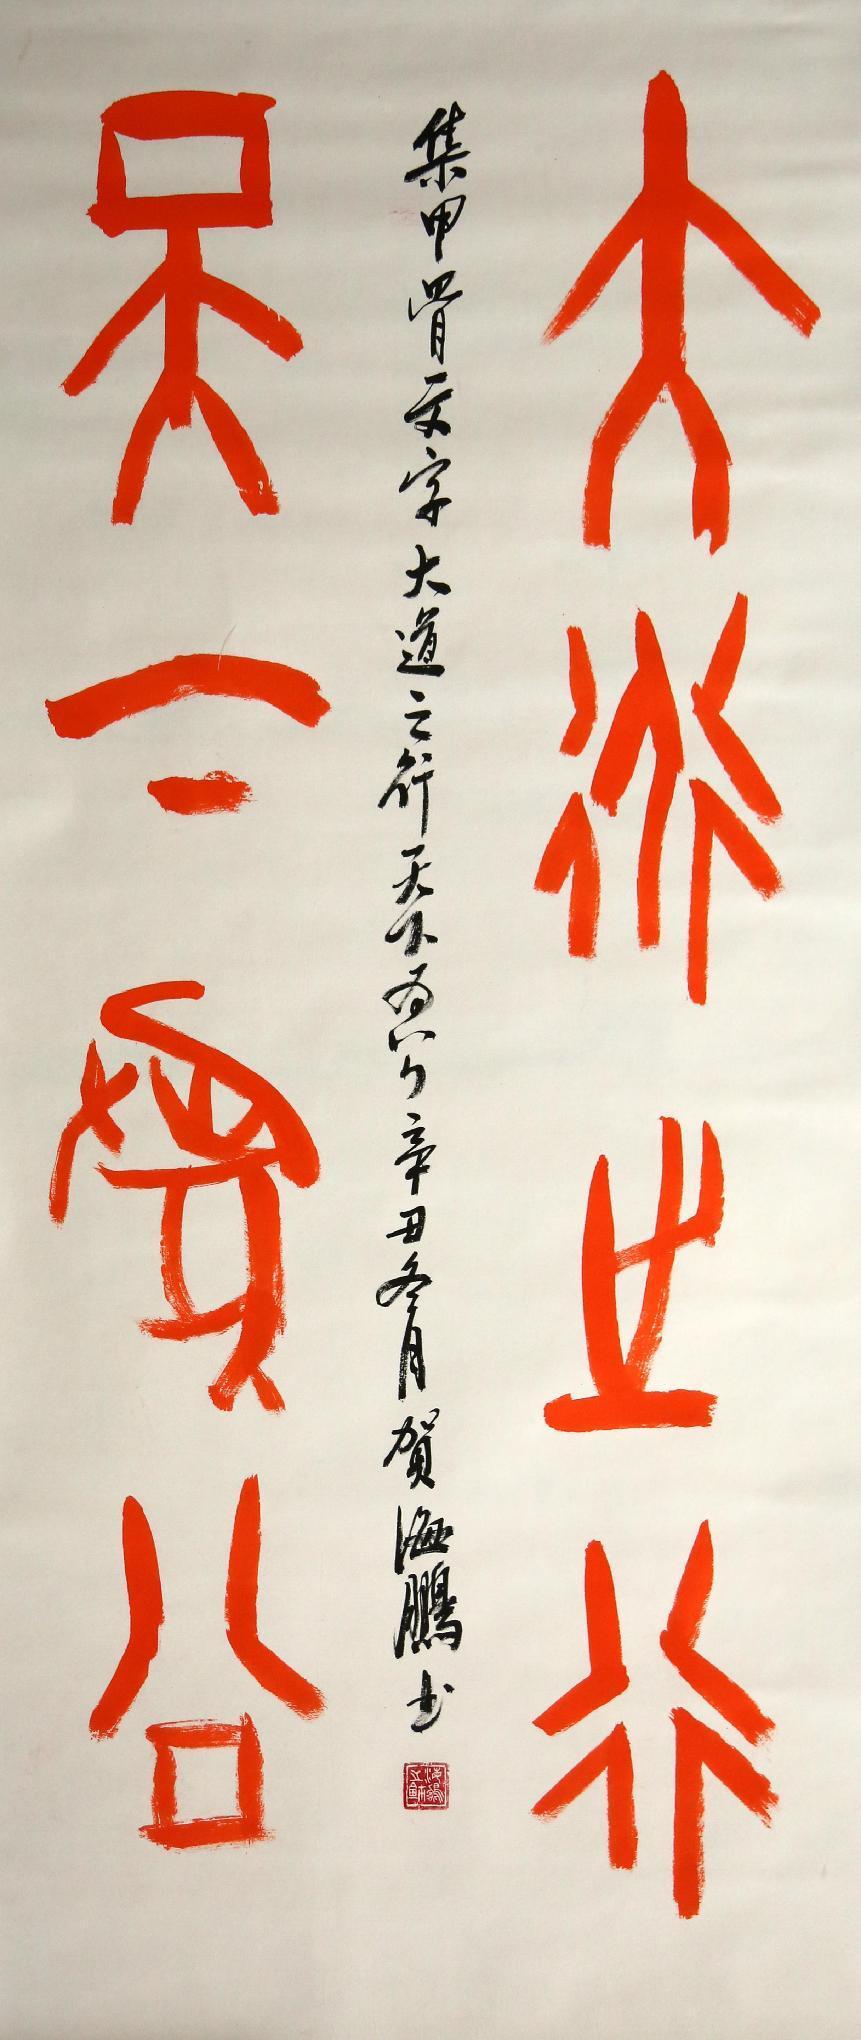 大道之行
集甲骨文字大道之行天下为公辛丑冬月贺海鹏书
天下为公